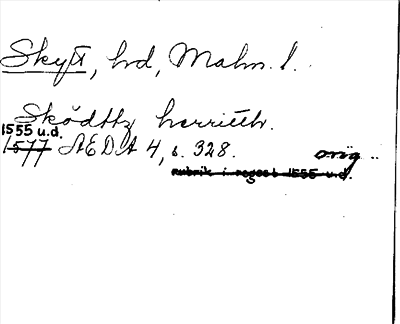 Skytt, hd, Malm. l.
Sködttz herritth.
1555 u.d.
1577 AEDA 4, s. 328. orig..
rubrik i regest 1555 u.d.